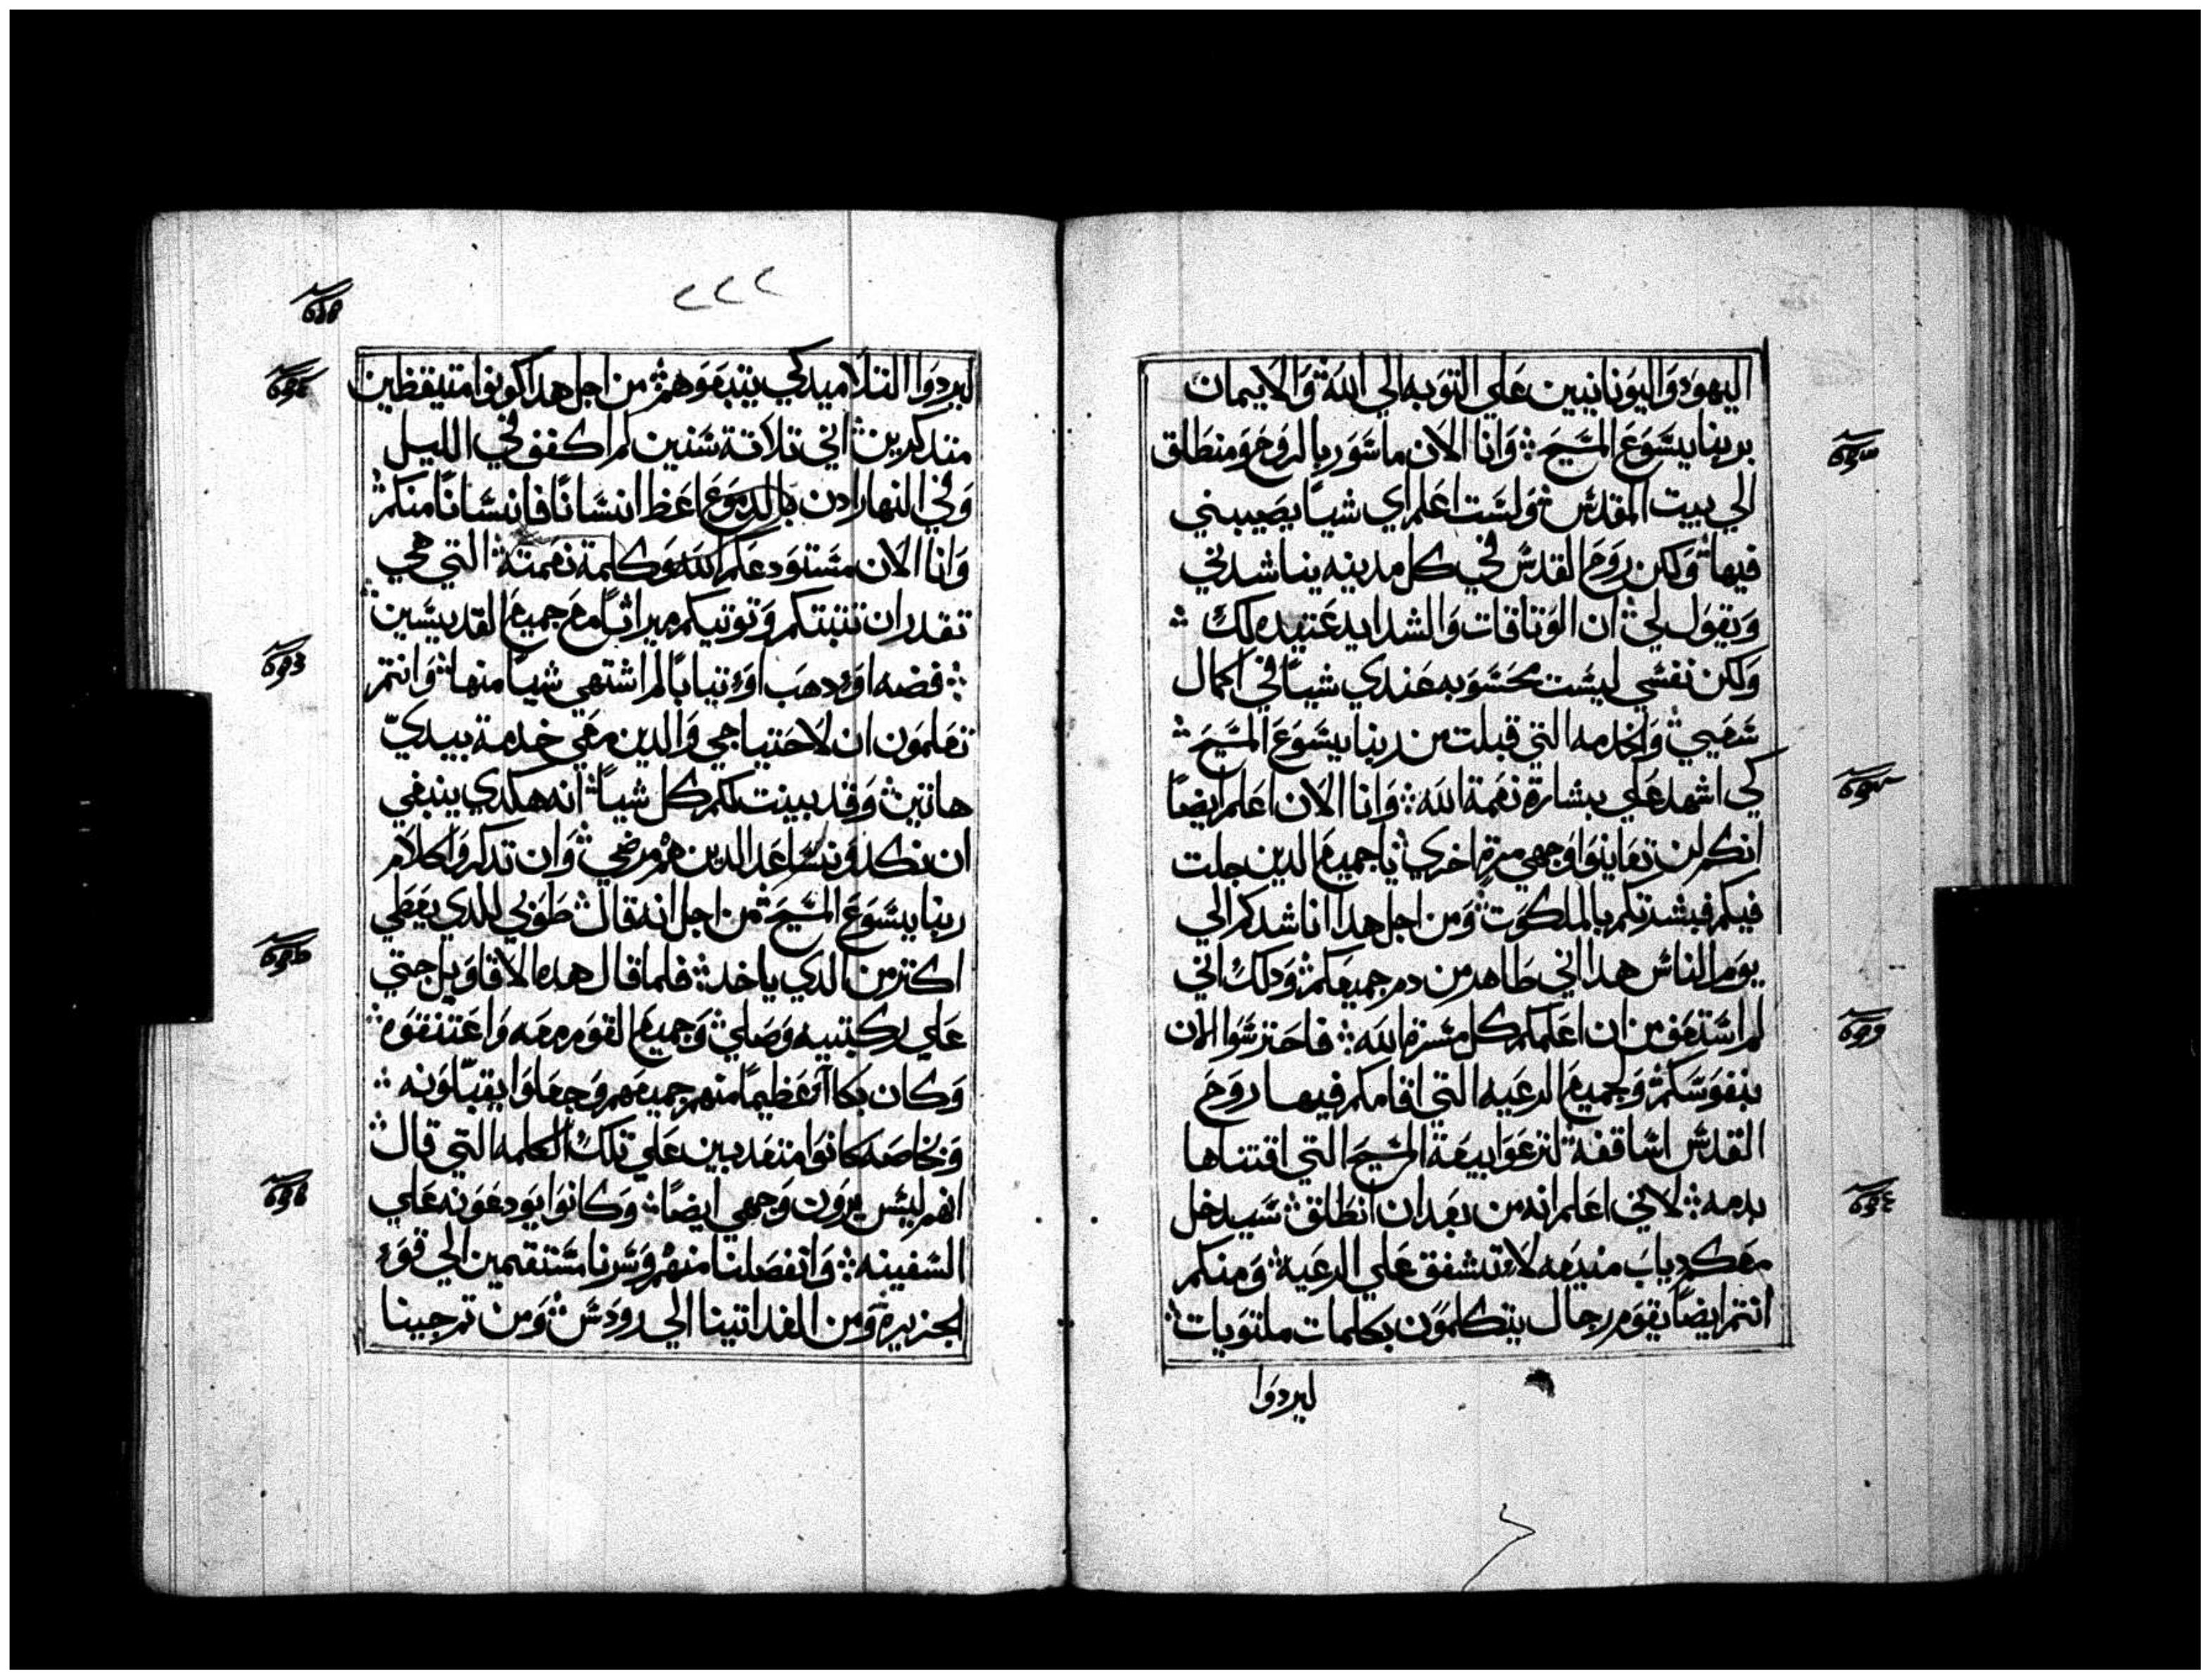 اليهود واليونانيين علي التوبه الي الله والايمان
بربنا يسوع المسيح وانا الان ماسور بالروح ومنطلق
الي بيت المقدس ولست اعلم اي شيا يصيبني
فيها ولكن روح القدس في كل مدينه يناشدني
ويقول لي ان الوتاقات والشدايد عتيده لك
ولكن نفسي ليست محسوبه عندي شيا في اكمال
سعيي والخدمه التي قبلت من ربنا يسوع المسيح
كي اشهد علي بشارة نعمة الله وانا الان اعلم ايضا
انكم لن تعاينوا وجهي مرة اخري يا جميع الدين جلت
فيكم فبشرتكم بالملكوت ومن اجل هدا اناشدكم الي
يوم الناس هدا اني طاهر من دم جميعكم ودلك اني
لم استعف من ان اعلمكم كل مسرة الله فاحترسوا الان
بنفوسكم وجميع الرعيه التي اقامكم فيها روح
القدس اساقفه لترعوا بيعة المسيح التي اقتناها
بدمه لاني اعلم انه من بعد ان انطلق سيدخل
معكم دياب منيعه لا تشفق علي الرعيه ومنكم
انتم ايضا يقوم رجال يتكلمون بكلمات ملتويات
ليردوا
٢٢٢
ليردوا التلاميد كي يتبعوهم من اجل هدا كونوا متيقظين
متدكرين اني تلاتة سنين لم اكفف في الليل
وفي النهار ادن بالدموع اعظ انسانا فانسانا منكم
وانا الان مستودعكم الله وكلمة نعمته التي هي
تقدر ان تثبتكم وتوتيكم ميراثا مع جميع القديسين
فضه او دهب او تيابا لم اشتهي شيا منها وانتم
تعلمون ان لاحتياجي والدين معي خدمة بيدي
هاتين وقد بينت لكم كل شيا انه هكدي ينبغي
ان نكد ونساعد الدين هم مرضي وان تدكروا كلام
ربنا يسوع المسيح من اجل انه قال طوبي للدي يعطي
اكتر من الدي ياخد فلما قال هده الاقاويل جتي
علي ركبتيه وصلي وجميع القوم معه واعتنقوه
وكان بكاآ عظيما منهم جميعهم وجعلوا يقبلونه
وبخاصه كانوا متعدبين علي تلك الكلمه التي قال
انهم ليس يرون وجهي ايضا وكانوا يودعونه علي
السفينه وانفصلنا منهم وسرنا مستقيمين الي قوء
الجزيرة ومن الغد اتينا الي رودس ومن تم جينا